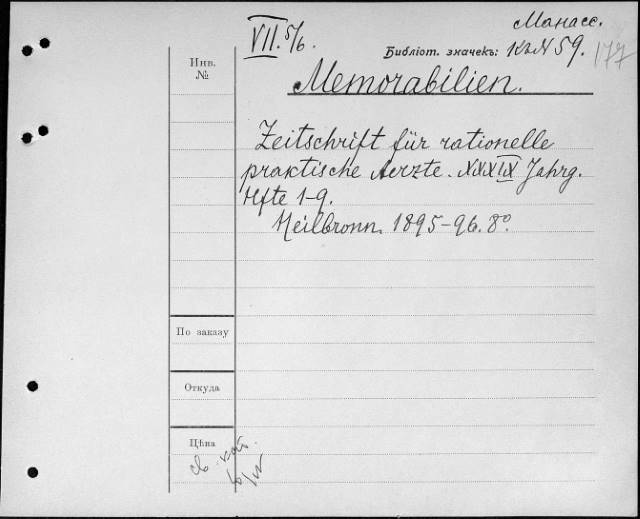 Манасс.
VII. 5/6.
Библіот. значекъ: К2N59. 177
Инв.
№
Memorabilien.
Zeitschrift für rationelle
praktische Aerzte. XXXIX Jahrg.
Hfte 1-9.
Heilbronn. 1895-96. 8º.
По заказу
Откуда
Цѣна